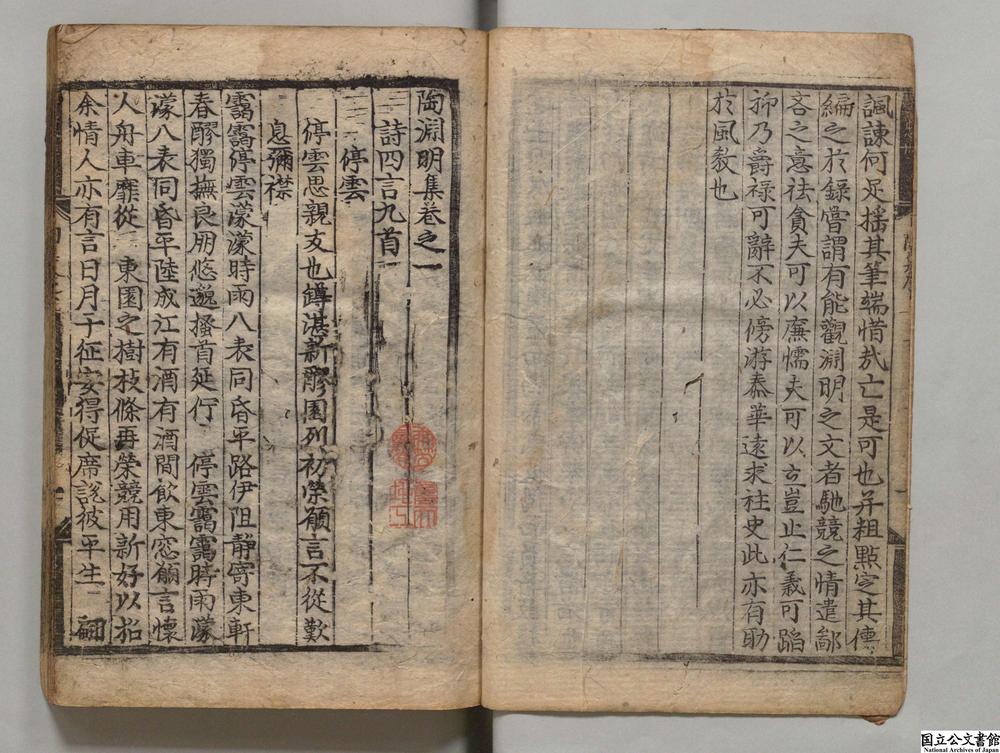 諷諫何足揺其筆端惜㢤亡是可也并粗㸃㝎其傳
編之於錄嘗謂有能觀淵明之文者馳競之情遣鄙
吝之意祛貪夫可以廉懦夫可以立豈止仁義可蹈
抑乃爵禄可辭不必傍游泰華遠求柱史此亦有助
於風敎也
陶淵明集卷之一
詩四言九首
停雲
停雲思親友也罇湛新醪園列初榮願言不從歎
息彌襟
靄靄停雲濛濛時雨八表同昏平路伊阻靜寄東軒
春醪獨撫良朋悠邈搔首延佇 停雲靄靄時雨濛
濛八表同昏平陸成江有酒有酒閒飲東窓願言懷
人舟車靡從 東園之樹枝條再榮競用新好以招
余情人亦有言日月于征安得促席說彼平生 翩
国立公文書館
National Archives of Japan